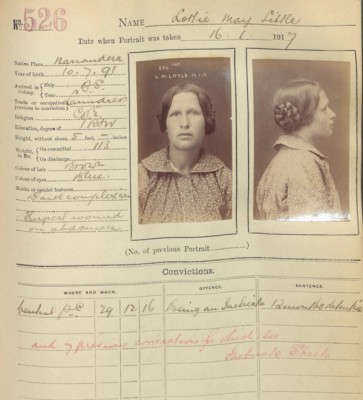 No. 526 NAME Lottie May Little
Date when Portrait was taken 16. 1. 1917
Native Place Narrandera
Year of birth 10. 7. 91
Arrived in Colony. { Ship
Year
Trade or occupation previous to conviction } Laundress
Religion C of E
Education, degree of R & W
Height, without shoes 5 feet, inches
Weight, in lbs. { On committal 113
On discharge
Colour of hair Brown
Colour of eyes Blue
Marks or special features
Dark complexion
Surgical wound
on abdomen
L. M. LITTLE
(No. of previous Portrait)
Convictions.
WHERE AND WHEN. OFFENCE. SENTENCE.
Central P.C. 29 12 16 Being an Inebriate 12 months detention
and 7 previous convictions